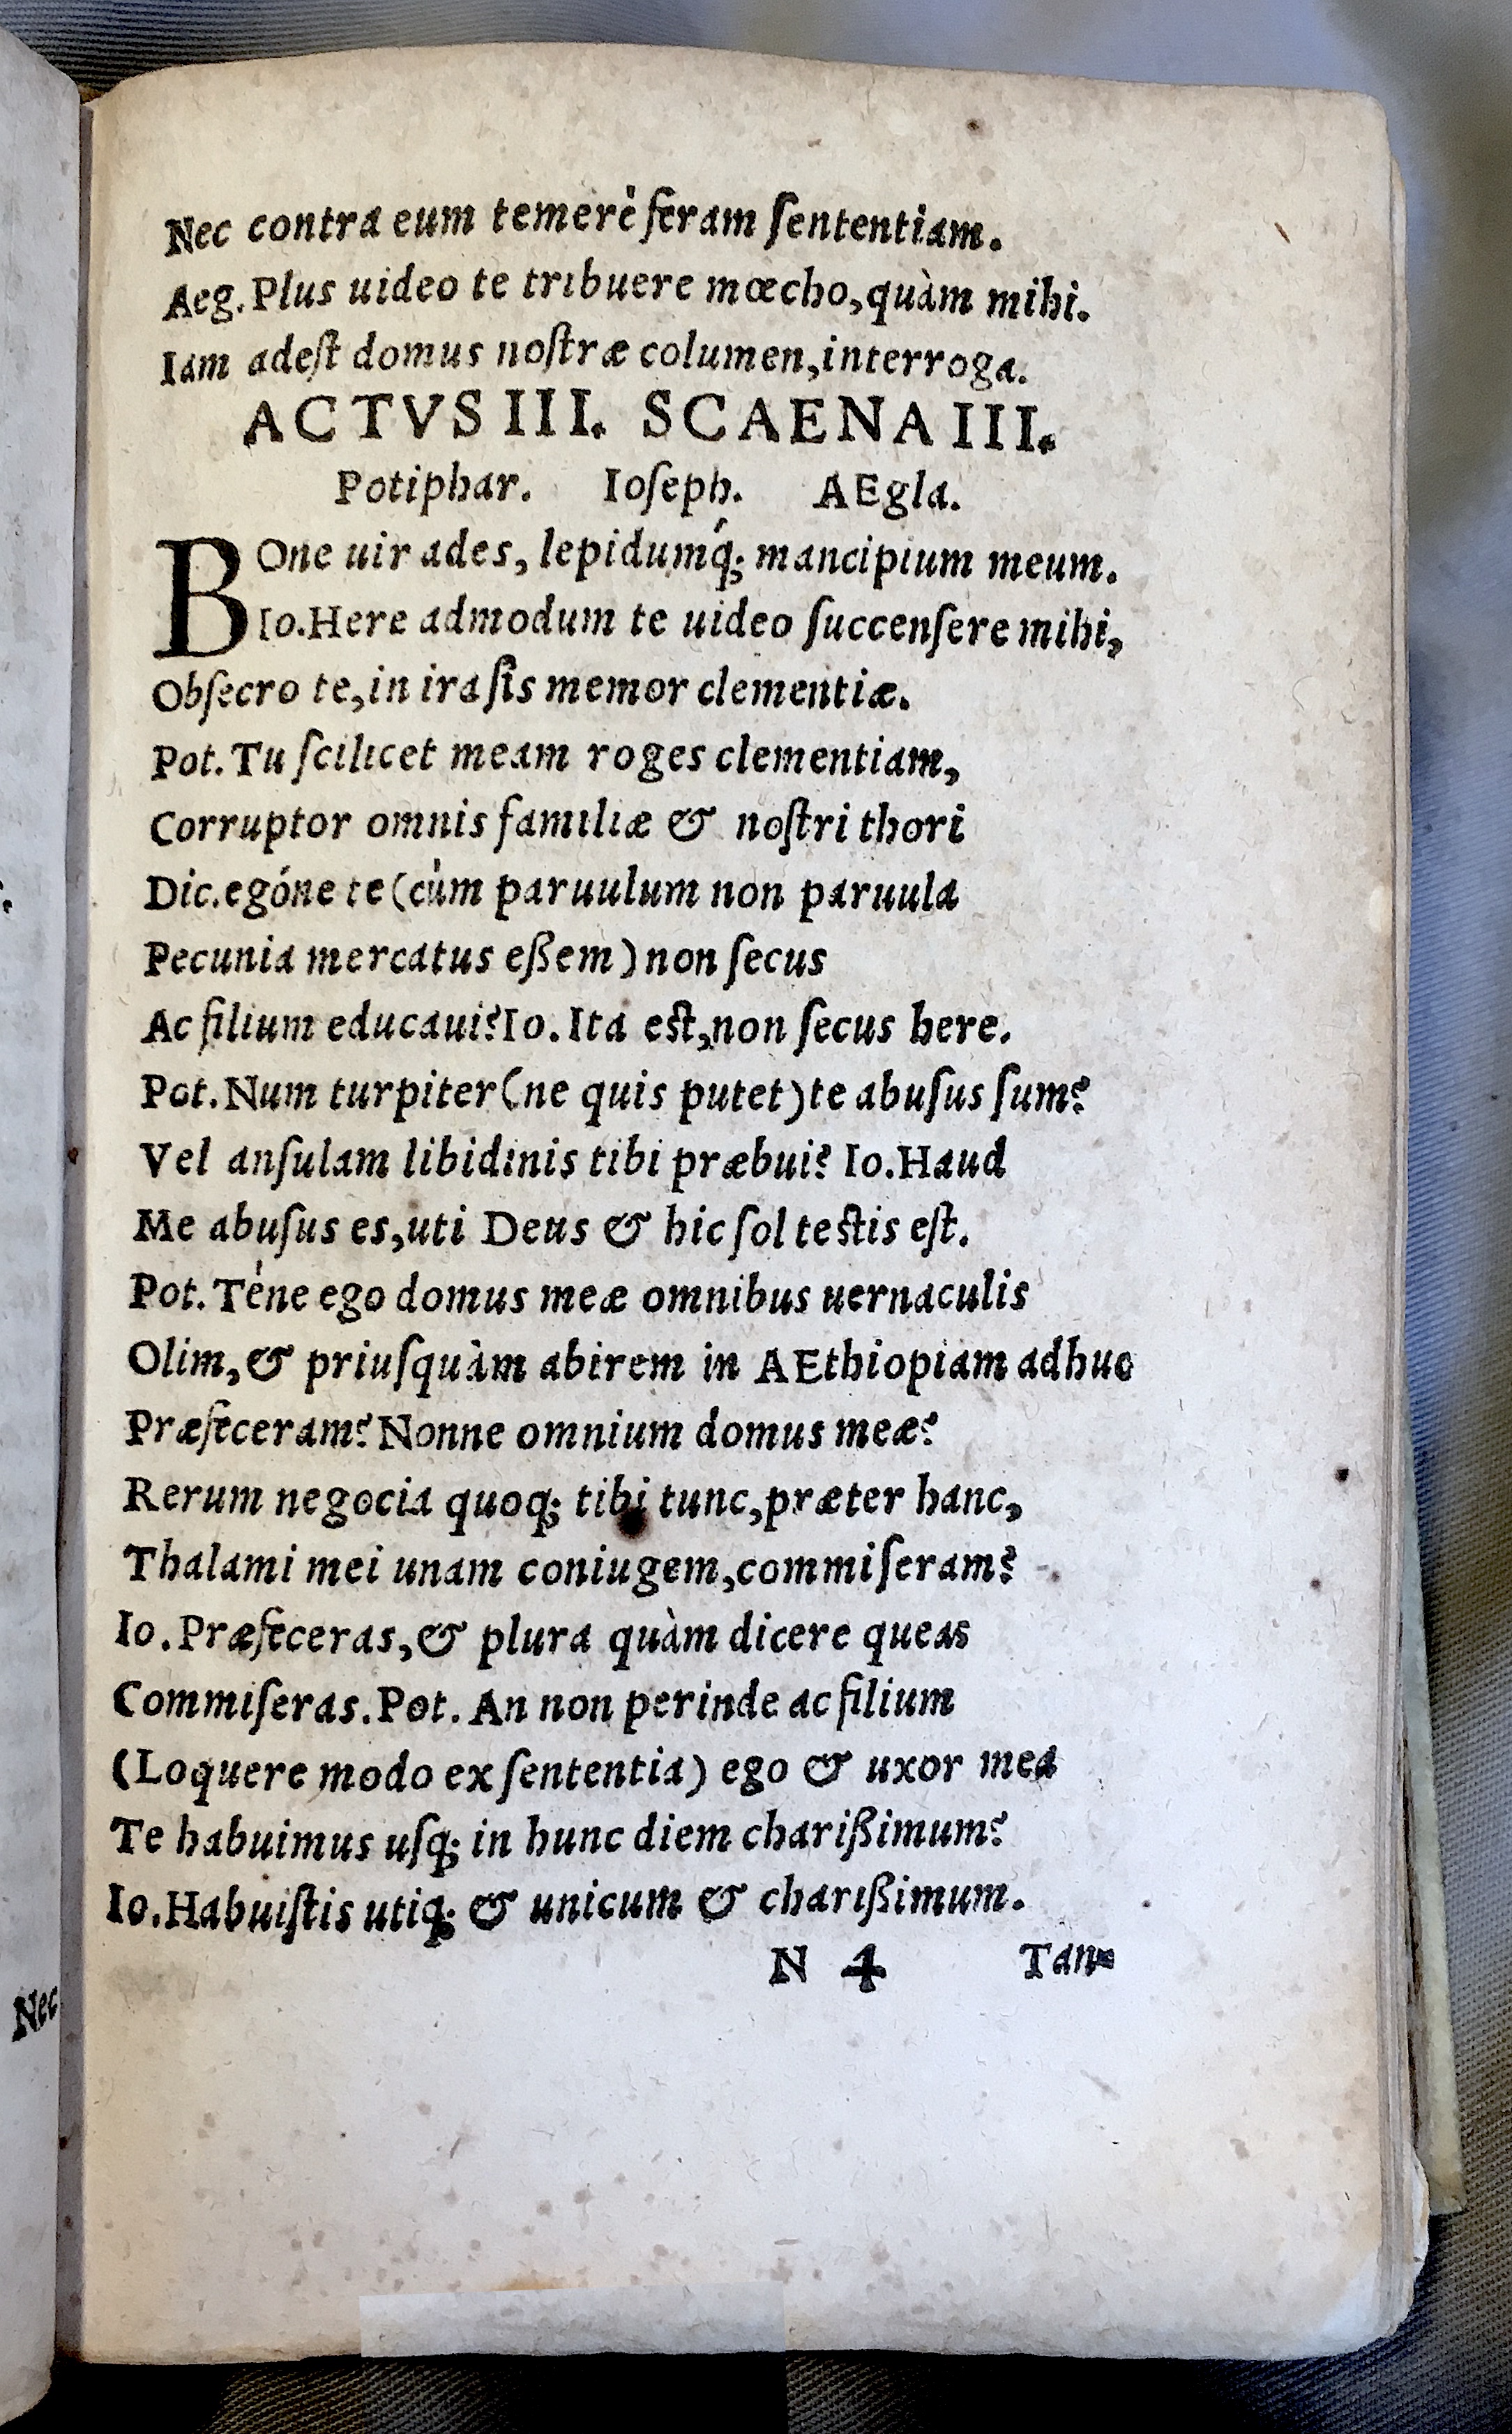 Nec contra eum temerè feram ſententiam.
Aeg. Plus uideo te tribuere mœcho, quàm mihi.
Iam adeſt domus noſtræ columen, interroga.
ACTVS III. SCAENA III.
Potiphar. Ioſeph. AEgla.
BOne uir ades, lepidumq́; mancipium meum.
Io. Here admodum te uideo ſuccenſere mihi,
Obſecro te, in ira ſis memor clementiæ.
Pot. Tu ſcilicet meam roges clementiam,
Corruptor omnis familiæ & noſtri thori
Dic. egóne te (cùm paruulum non paruula
Pecunia mercatus eßem) non ſecus
Ac filium educaui? Io. Ita eſt, non ſecus here.
Pot. Num turpiter (ne quis putet) te abuſus ſum?
Vel anſulam libidinis tibi præbui? Io. Haud
Me abuſus es, uti Deus & hic ſol teſtis eſt.
Pot. Téne ego domus meæ omnibus uernaculis
Olim, & priuſquàm abirem in AEthiopiam adhuc
Præfeceram? Nonne omnium domus meæ?
Rerum negocia quoq; tibi tunc, præter hanc,
Thalami mei unam coniugem, commiſeram?
Io. Præfeceras, & plura quàm dicere queas
Commiſeras. Pot. An non perinde ac filium
(Loquere modo ex ſententia) ego & uxor mea
Te habuimus uſq; in hunc diem charißimum?
Io. Habuiſtis utiq; & unicum & charißimum.
N 4 Tan=
Nec